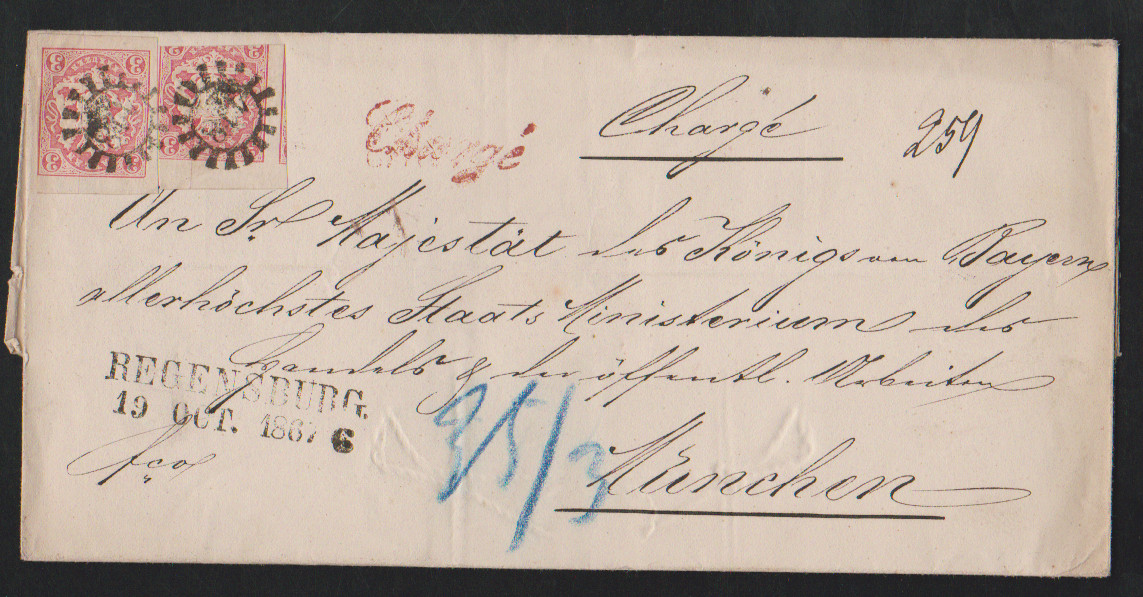 3 3 3
3 3 3
Chargé
Chargé
259
An Sr. Majestät des Königs von Bayern
allerhöchstes Staats Ministerium des
Handels & der öffentl. Arbeiten
REGENSBURG.
19 OCT. 1867 6
fco
35/3
München